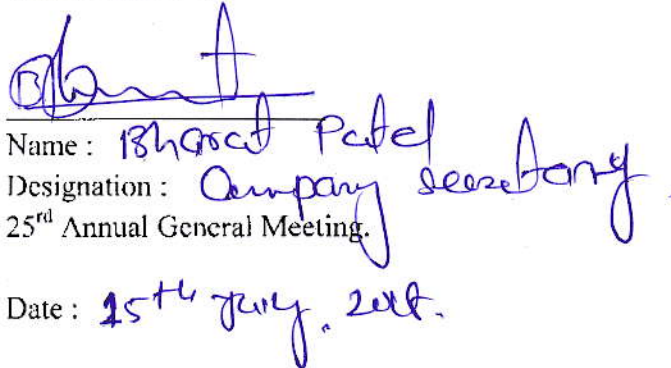 Name : Bharat Patel
Designation : Company Secretary
25rd Annual General Meeting.
Date : 15th July,